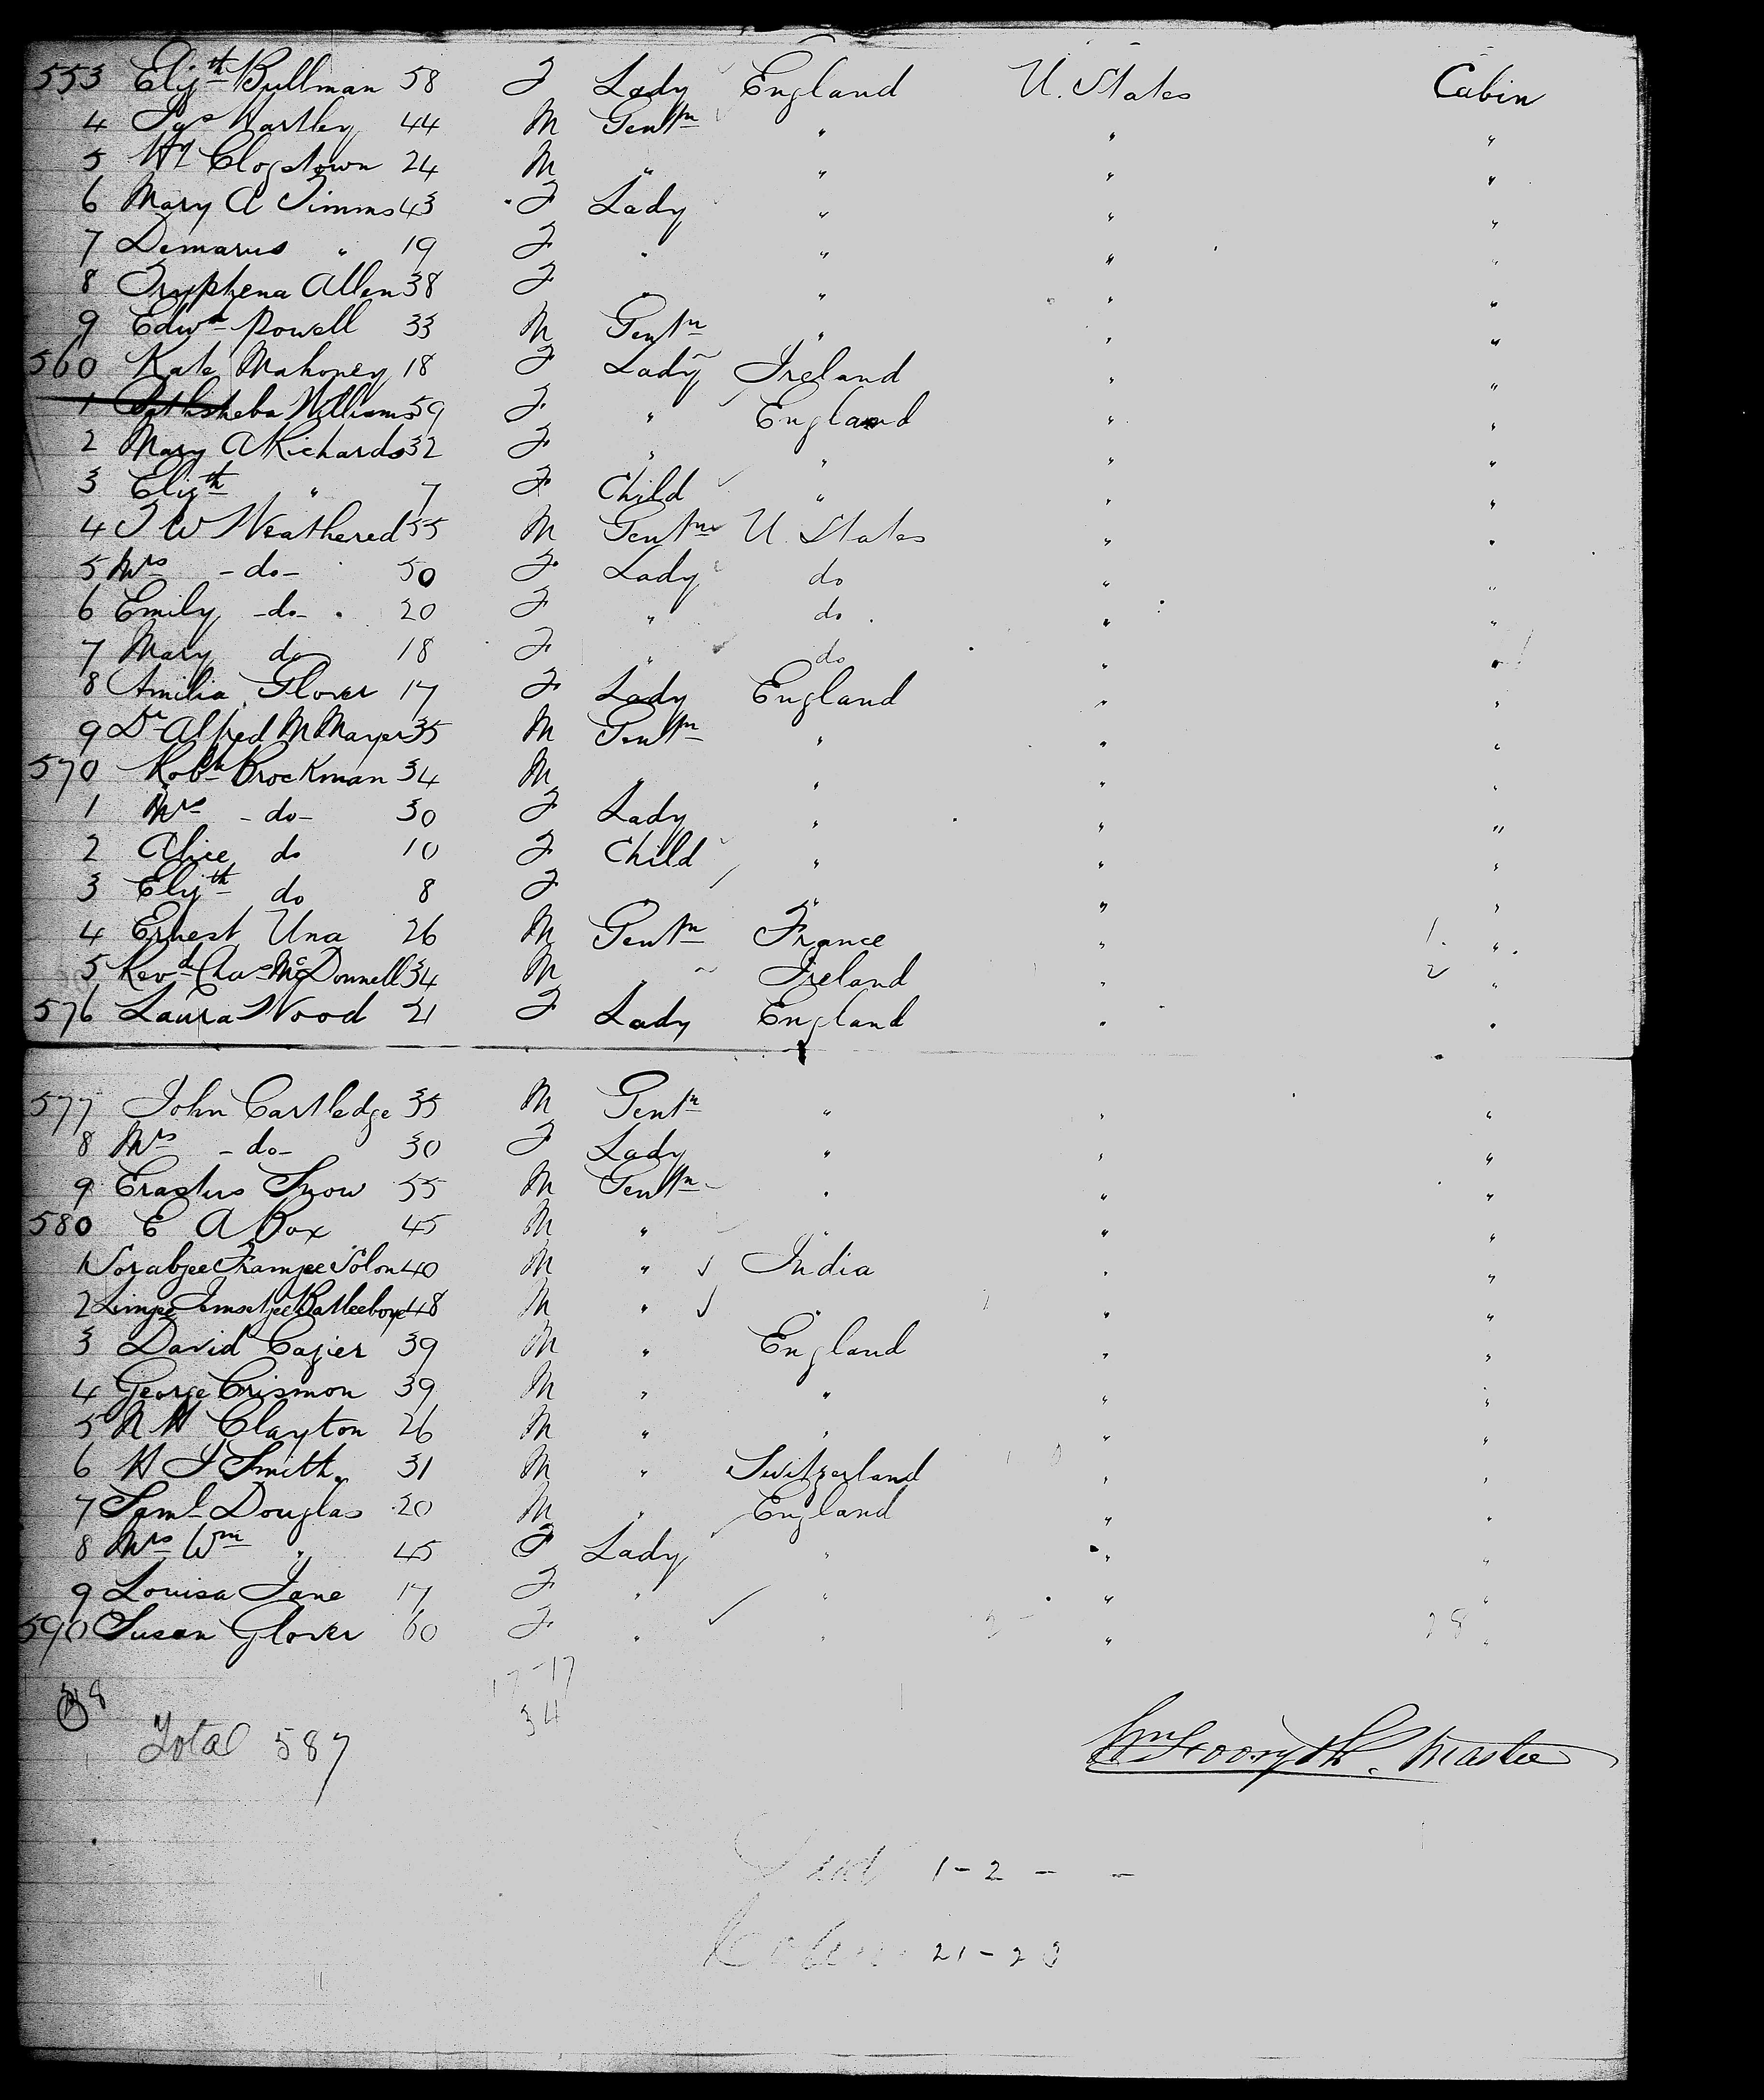 553 Elizth Bullman 58 F Lady England U. States Cabin
4 Jas Hartley 44 M Gentm " " "
5 Wm Clogstown 24 M " " " "
6 Mary A Timms 43 F Lady " " "
7 Demarus " 19 F " " " "
8 Tryphena Allen 38 F " " " "
9 Edwd Powell 33 M Gentn " " "
560 Kate Mahoney 18 F Lady Ireland " "
1 Bathsheba Williams 59 F " England " "
2 Mary A Richards 32 F " " " "
3 Elizth " 7 F Child " " "
4 T W Weathered 55 M Gentm U. States " "
5 Mrs - do - 50 F Lady do " "
6 Emily - do - 20 F " do " "
7 Mary do 18 F " do " "
8 Amilia Glover 17 F Lady England " "
9 Dr Alfred M Mayer 35 M Gentm " " "
570 Robt Brockman 34 M " " " "
1 Mrs - do - 30 F Lady " " "
2 Alice do 10 F Child " " "
3 Elizth do 8 F " " " "
4 Ernest Una 26 M Gentm France " "
5 Revd Chas McDonnell 34 M " Ireland " "
576 Laura Wood 21 F Lady England " "
577 John Cartledge 35 M Gentn " " "
8 Mrs - do - 30 F Lady " " "
9 Erastus Snow 55 M Gentm " " "
580 E A Box 45 M " " " "
1 Sorabjee Framjee Solon 40 M " India " "
2 Limjee Jemsetjee 48 M " " " "
3 David Cazier 39 M " England " "
4 George Crismon 39 M " " " "
5 N W Clayton 26 M " " " "
6 W J Smith 31 M " Switzerland " "
7 Saml Douglas 20 M " England " "
8 Mrs Wm " 45 F Lady " " "
9 Louisa Jane 17 F " " " "
590 Susan Glover 60 F " " " "
17-17
34
Total 587
Master
1-2 - -
21-23